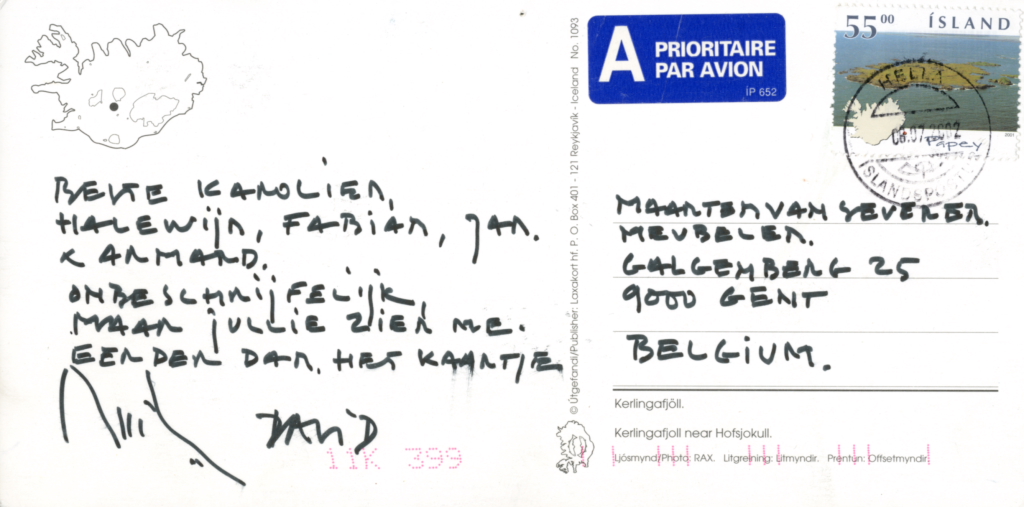 BESTE KAROLIEN,
HALEWIJN, FABIAN, JAN.
& ARMAND.
ONBESCHRIJFELIJK,
MAAR JULLIE ZIEN ME.
EERDER DAN. HET KAARTJE
DAVID
11K 399
© Útgefandi/Publisher: Laxakort hf. P. O. Box 401 - 121 Reykjavík - Iceland No. 1093
A PRIORITAIRE
PAR AVION
ÍP 652
55⁰⁰ ÍSLAND
Papey
2001
HELLA
08.07.2002
ÍSLANDSPÓSTUR
MAARTEN VAN SEVEREN.
MEUBELEN.
GALGENBERG 25
9000 GENT
BELGIUM.
Kerlingafjöll.
Kerlingafjoll near Hofsjokull.
Ljósmynd/Photo: RAX. Litgreining: Litmyndir. Prentun: Offsetmyndir.